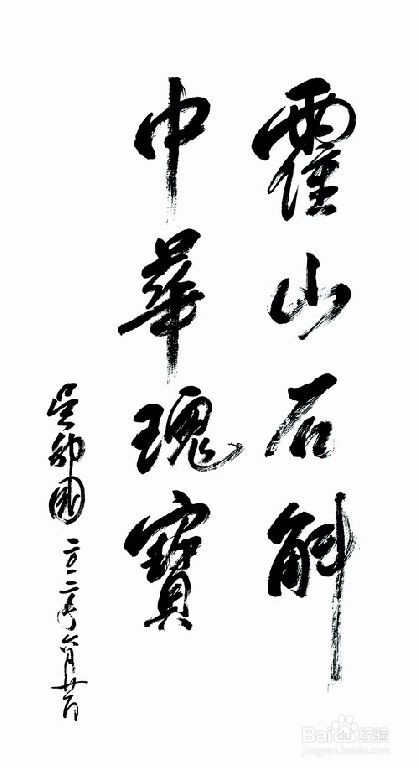 霍山石斛
中華瑰寶
吴邦國 二〇一二年六月廿一日
Baidu 经验
jingyan.baidu.com